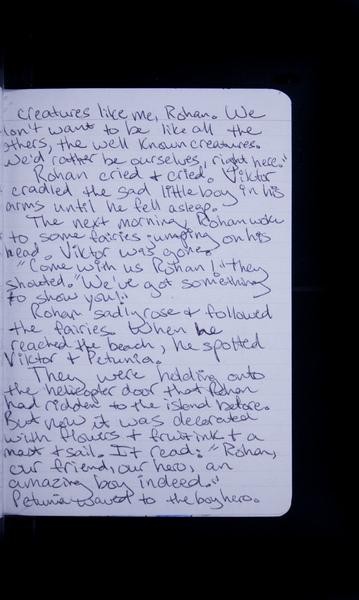 creatures like me, Rohan. We
don't want to be like all the
others, the well known creatures.
We'd rather be ourselves, right here."
Rohan cried & cried. Viktor
cradled the sad little boy in his
arms until he fell asleep.
The next morning, Rohan woke
to some fairies jumping on his
head. Viktor was gone.
"Come with us Rohan!" they
shouted. "We've got something
to show you!"
Rohan sadly rose & followed
the fairies. When he
reached the beach, he spotted
Viktor & Petunia.
They were holding onto
the helicopter door that Rohan
had ridden to the island before.
But now it was decorated
with flowers & fruit ink & a
mast & sail. It read: "Rohan,
our friend, our hero, an
amazing boy indeed."
Petunia waved to the boy hero.